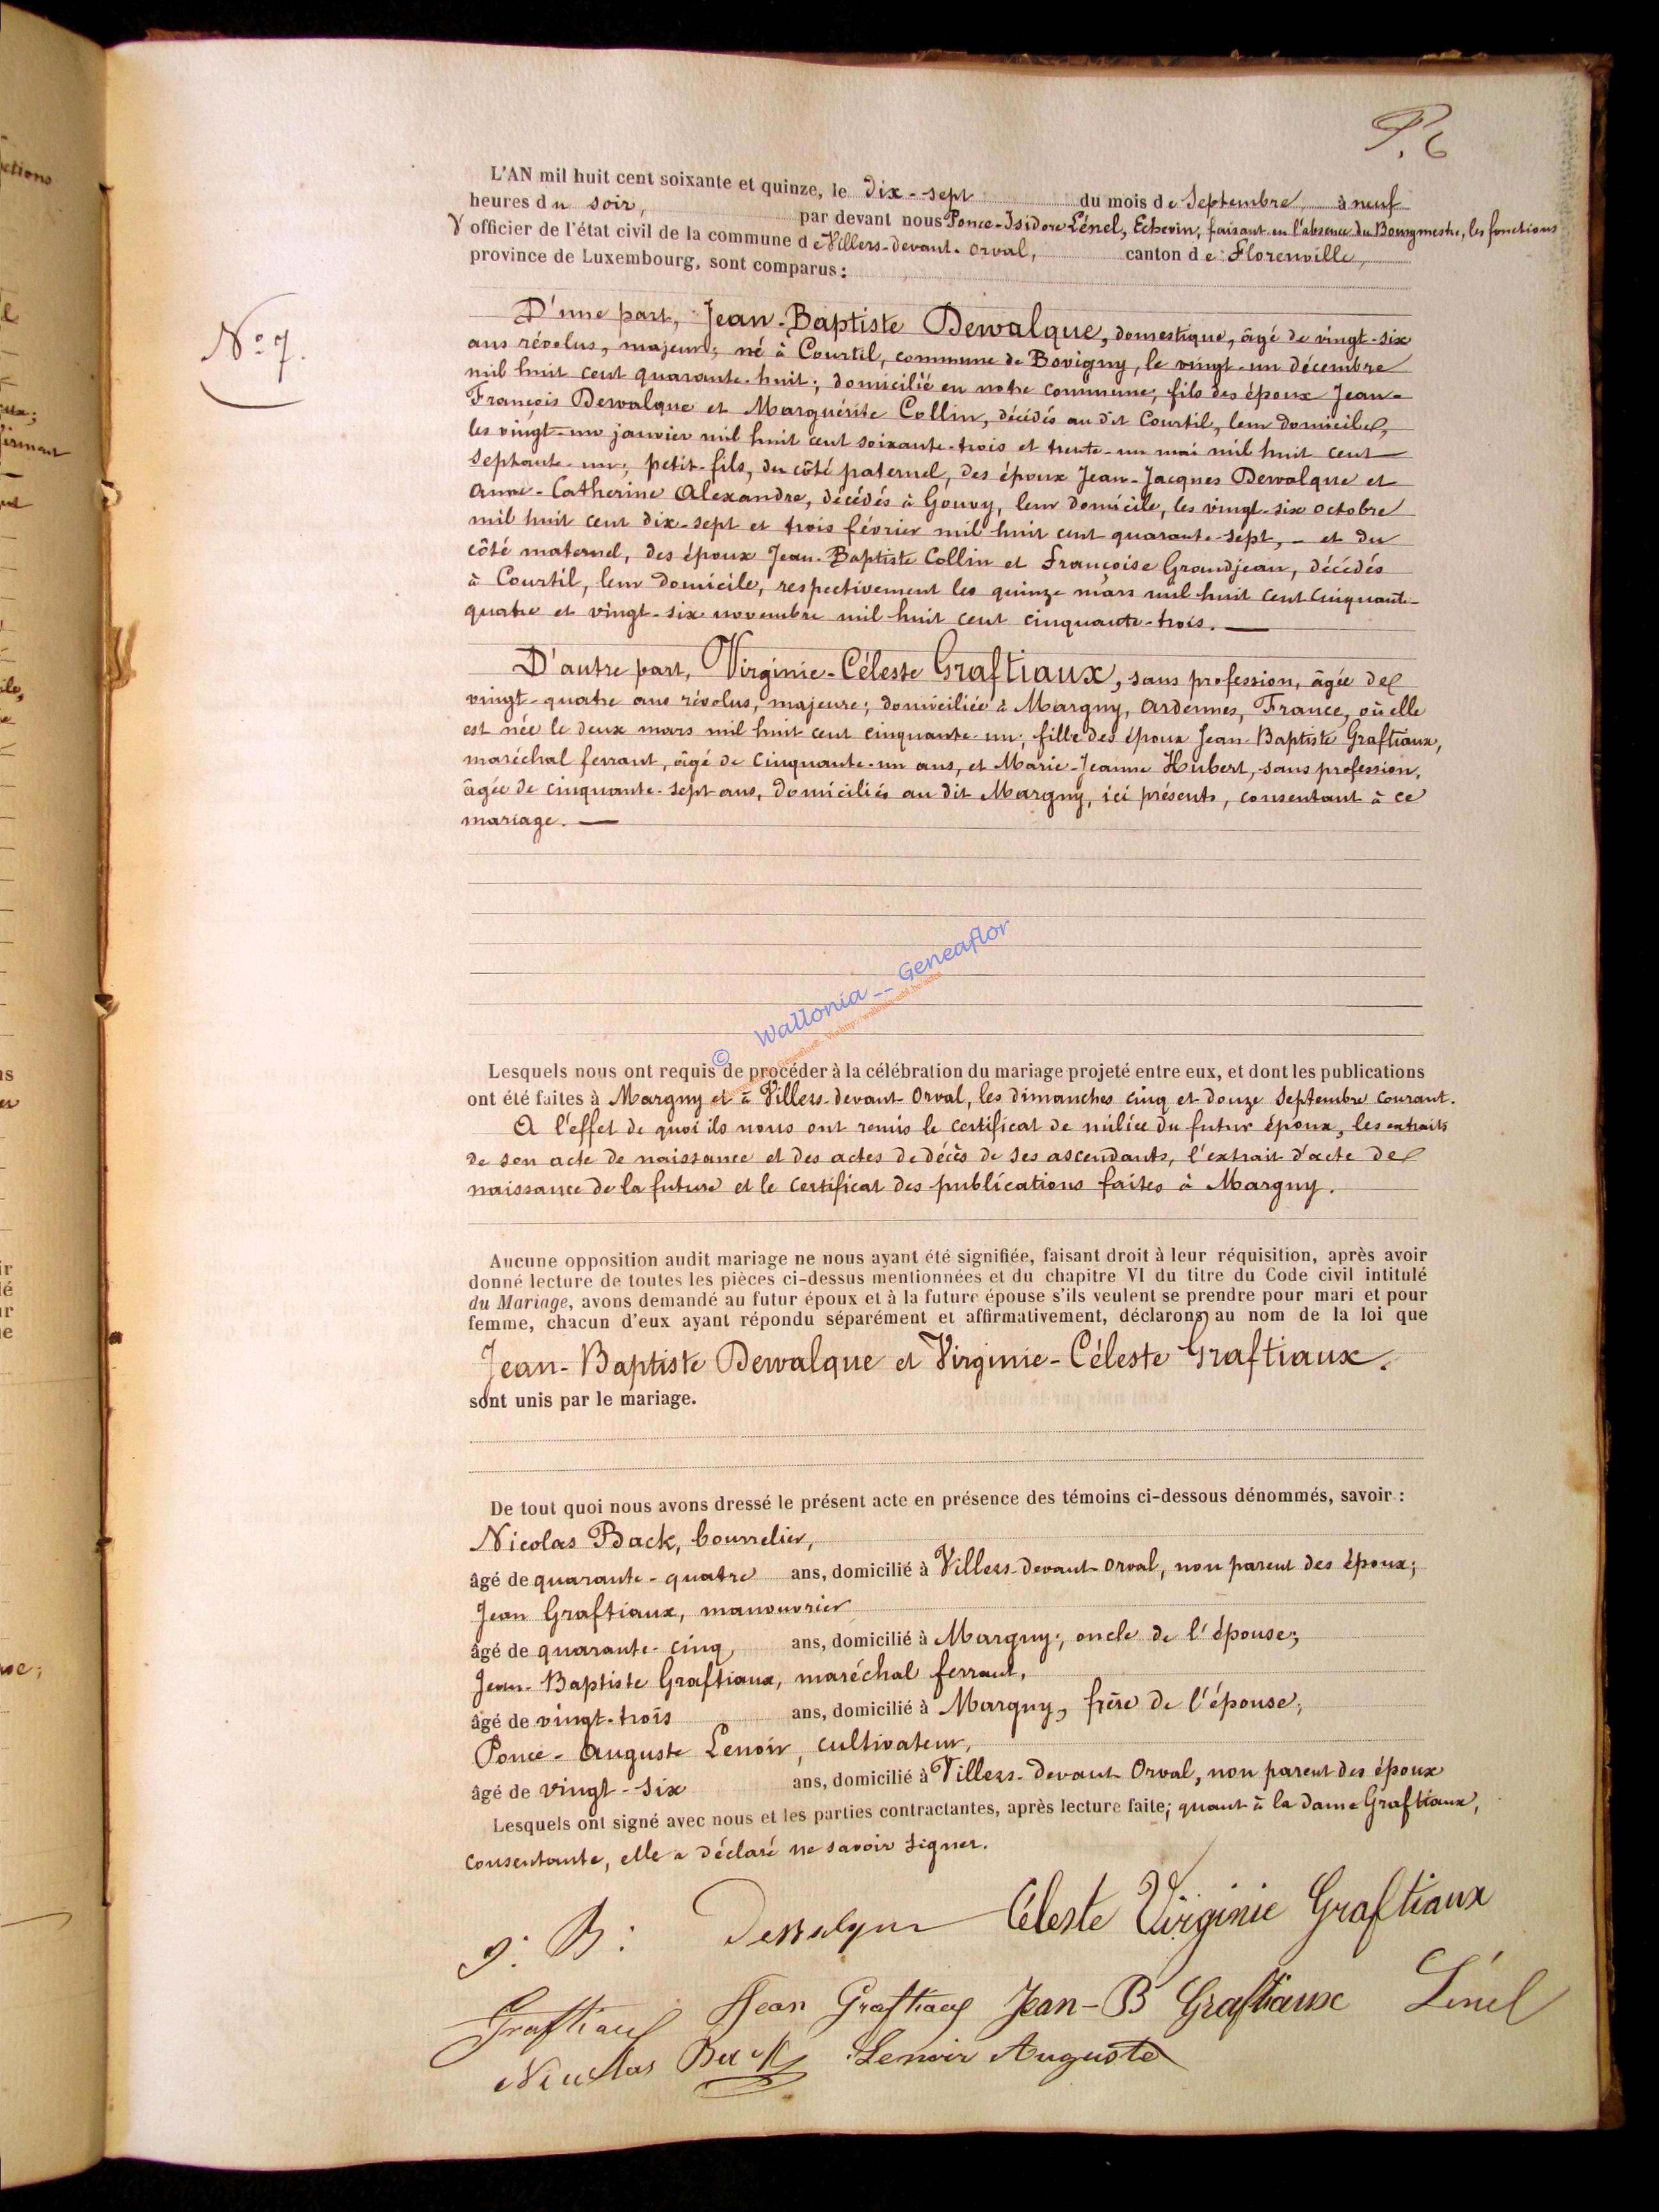 P. 6
L'AN mil huit cent soixante et quinze, le dix-sept du mois de Septembre à neuf
heures du soir, par devant nous Ponce-Isidore Lénel, Echevin, faisant en l'absence du Bourgmestre, les fonctions
officier de l'état civil de la commune de Villers-devant-Orval, canton de Florenville,
province de Luxembourg, sont comparus :
N° 7.
D'une part, Jean-Baptiste Dewalque, domestique, âgé de vingt-six
ans révolus, majeur; né à Courtil, commune de Bovigny, le vingt-un décembre
mil huit cent quarante-huit; domicilié en notre commune; fils des époux Jean-
François Dewalque et Marguérite Collin, décédés au dit Courtil, leur domicile,
les vingt-un janvier mil huit cent soixante-trois et trente-un mai mil huit cent
septante-un; petit-fils, du côté paternel, des époux Jean-Jacques Dewalque et
Anne-Catherine Alexandre, décédés à Gouvy, leur domicile, les vingt-six octobre
mil huit cent dix-sept et trois février mil huit cent quarante-sept, - et du
côté maternel, des époux Jean-Baptiste Collin et Françoise Grandjean, décédés
à Courtil, leur domicile, respectivement les quinze mars mil huit cent cinquante-
quatre et vingt-six novembre mil huit cent cinquante-trois. —
D'autre part, Virginie-Céleste Graftiaux, sans profession, âgée de
vingt-quatre ans révolus, majeure; domiciliée à Margny, Ardennes, France, où elle
est née le deux mars mil huit cent cinquante-un; fille des époux Jean-Baptiste Graftiaux,
maréchal ferrant, âgé de cinquante-un ans, et Marie-Jeanne Hubert, sans profession,
âgée de cinquante-sept ans, domiciliés au dit Margny, ici présents, consentant à ce
mariage. —
© Wallonia -- Geneaflor
Lesquels nous ont requis de procéder à la célébration du mariage projeté entre eux, et dont les publications
ont été faites à Margny et à Villers-devant-Orval, les dimanches cinq et douze Septembre courant.
A l'effet de quoi ils nous ont remis le certificat de milice du futur époux, les extraits
de son acte de naissance et des actes de décès de ses ascendants, l'extrait d'acte de
naissance de la future et le certificat des publications faites à Margny.
Aucune opposition audit mariage ne nous ayant été signifiée, faisant droit à leur réquisition, après avoir
donné lecture de toutes les pièces ci-dessus mentionnées et du chapitre VI du titre du Code civil intitulé
du Mariage, avons demandé au futur époux et à la future épouse s'ils veulent se prendre pour mari et pour
femme, chacun d'eux ayant répondu séparément et affirmativement, déclarons au nom de la loi que
Jean-Baptiste Dewalque et Virginie-Céleste Graftiaux.
sont unis par le mariage.
De tout quoi nous avons dressé le présent acte en présence des témoins ci-dessous dénommés, savoir :
Nicolas Back, bourrelier,
âgé de quarante-quatre ans, domicilié à Villers-devant-Orval, non parent des époux;
Jean Graftiaux, manouvrier
âgé de quarante-cinq ans, domicilié à Margny; oncle de l'épouse;
Jean-Baptiste Graftiaux, maréchal ferrant,
âgé de vingt-trois ans, domicilié à Margny, frère de l'épouse;
Ponce-Auguste Lenoir, cultivateur,
âgé de vingt-six ans, domicilié à Villers-devant-Orval, non parent des époux
Lesquels ont signé avec nous et les parties contractantes, après lecture faite; quant à la dame Graftiaux,
consentante, elle a déclaré ne savoir signer.
J: B: Dewalque Céleste Virginie Graftiaux
Graftiaux Jean Graftiaux Jean-B Graftiaux Lénel
Nicolas Back Lenoir Auguste